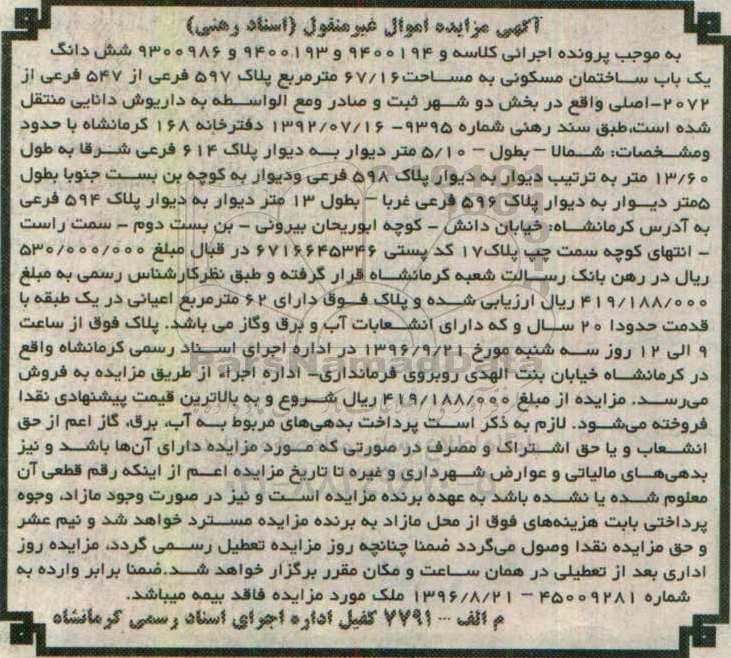 آگهی مزایده اموال غیرمنقول (اسناد رهنی)
به موجب پرونده اجرائی کلاسه ۹۴۰۰۱۹۴ و ۹۴۰۰۱۹۳ و ۹۳۰۰۹۸۶ شش دانگ
یک باب ساختمان مسکونی به مساحت ۶۷/۱۶ مترمربع پلاک ۵۹۷ فرعی از ۵۴۷ فرعی از
۲۰۷۲-اصلی واقع در بخش دو شهر ثبت و صادر ومع الواسطه به داریوش دانایی منتقل
شده است،طبق سند رهنی شماره ۹۳۹۵- ۱۳۹۲/۰۷/۱۶ دفترخانه ۱۶۸ کرمانشاه با حدود
ومشخصات: شمالا – بطول – ۵/۱۰ متر دیوار به دیوار پلاک ۶۱۴ فرعی شرقا به طول
۱۳/۶۰ متر به ترتیب دیوار به دیوار پلاک ۵۹۸ فرعی ودیوار به کوچه بن بست جنوبا بطول
۵متر دیوار به دیوار پلاک ۵۹۶ فرعی غربا – بطول ۱۳ متر دیوار به دیوار پلاک ۵۹۴ فرعی
به آدرس کرمانشاه: خیابان دانش - کوچه ابوریحان بیرونی - بن بست دوم - سمت راست
- انتهای کوچه سمت چپ پلاک۱۷ کد پستی ۶۷۱۶۶۴۵۳۴۶ در قبال مبلغ ۵۳۰/۰۰۰/۰۰۰
ریال در رهن بانک رسالت شعبه کرمانشاه قرار گرفته و طبق نظرکارشناس رسمی به مبلغ
۴۱۹/۱۸۸/۰۰۰ ریال ارزیابی شده و پلاک فوق دارای ۶۲ مترمربع اعیانی در یک طبقه با
قدمت حدودا ۲۰ سال و که دارای انشعابات آب و برق وگاز می باشد. پلاک فوق از ساعت
۹ الی ۱۲ روز سه شنبه مورخ ۱۳۹۶/۹/۲۱ در اداره اجرای اسناد رسمی کرمانشاه واقع
در کرمانشاه خیابان بنت الهدی روبروی فرمانداری- اداره اجراء از طریق مزایده به فروش
می‌رسد. مزایده از مبلغ ۴۱۹/۱۸۸/۰۰۰ ریال شروع و به بالاترین قیمت پیشنهادی نقدا
فروخته می‌شود. لازم به ذکر است پرداخت بدهی‌های مربوط به آب، برق، گاز اعم از حق
انشعاب و یا حق اشتراک و مصرف در صورتی که مورد مزایده دارای آن‌ها باشد و نیز
بدهی‌های مالیاتی و عوارض شهرداری و غیره تا تاریخ مزایده اعم از اینکه رقم قطعی آن
معلوم شده یا نشده باشد به عهده برنده مزایده است و نیز در صورت وجود مازاد، وجوه
پرداختی بابت هزینه‌های فوق از محل مازاد به برنده مزایده مسترد خواهد شد و نیم عشر
و حق مزایده نقدا وصول می‌گردد ضمنا چنانچه روز مزایده تعطیل رسمی گردد، مزایده روز
اداری بعد از تعطیلی در همان ساعت و مکان مقرر برگزار خواهد شد.ضمنا برابر وارده به
شماره ۴۵۰۰۹۲۸۱ – ۱۳۹۶/۸/۲۱ ملک مورد مزایده فاقد بیمه میباشد.
م الف ... ۷۷۹۱ کفیل اداره اجرای اسناد رسمی کرمانشاه